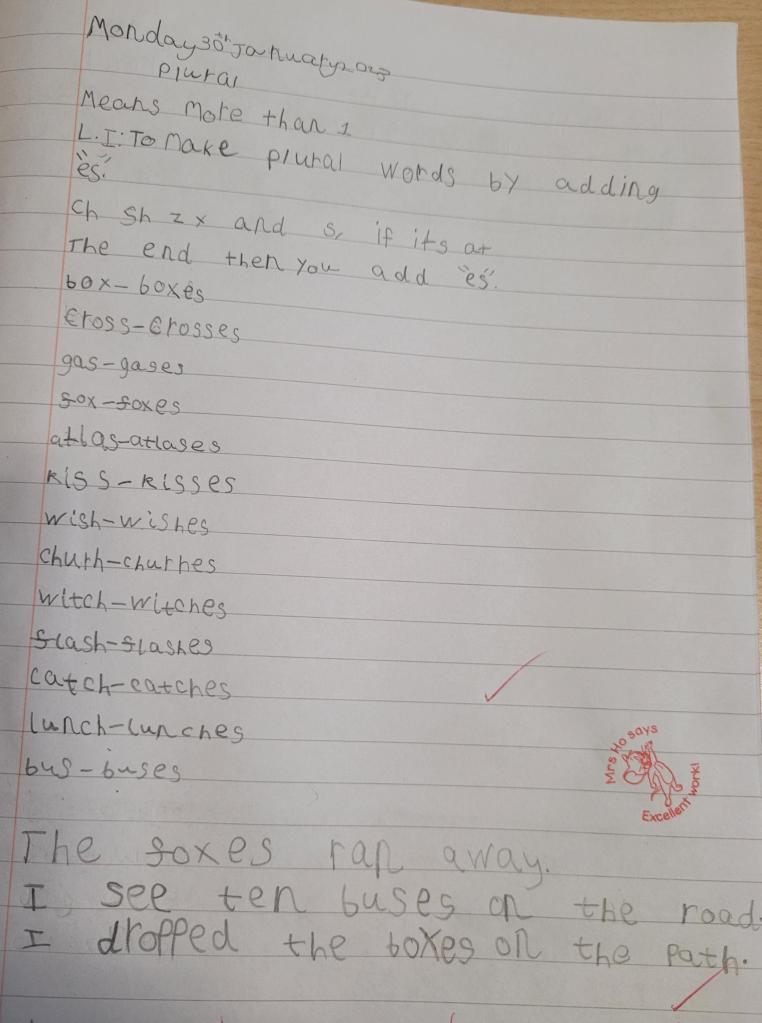 Monday 30th January 2023
Plural
Means More than 1
L.I: To make plural words by adding
"es."
Ch sh z x and s, if its at
The end then you add "es".
box - boxes
Cross - Crosses
gas - gases
fox - foxes
atlas - atlases
Kiss - Kisses
wish - wishes
churh - churhes
witch - witches
flash - flashes
Catch - catches
lunch - lunches
bus - buses
Mrs Ho says
Excellent work!
The foxes ran away.
I see ten buses on the road.
I dropped the boxes on the path.